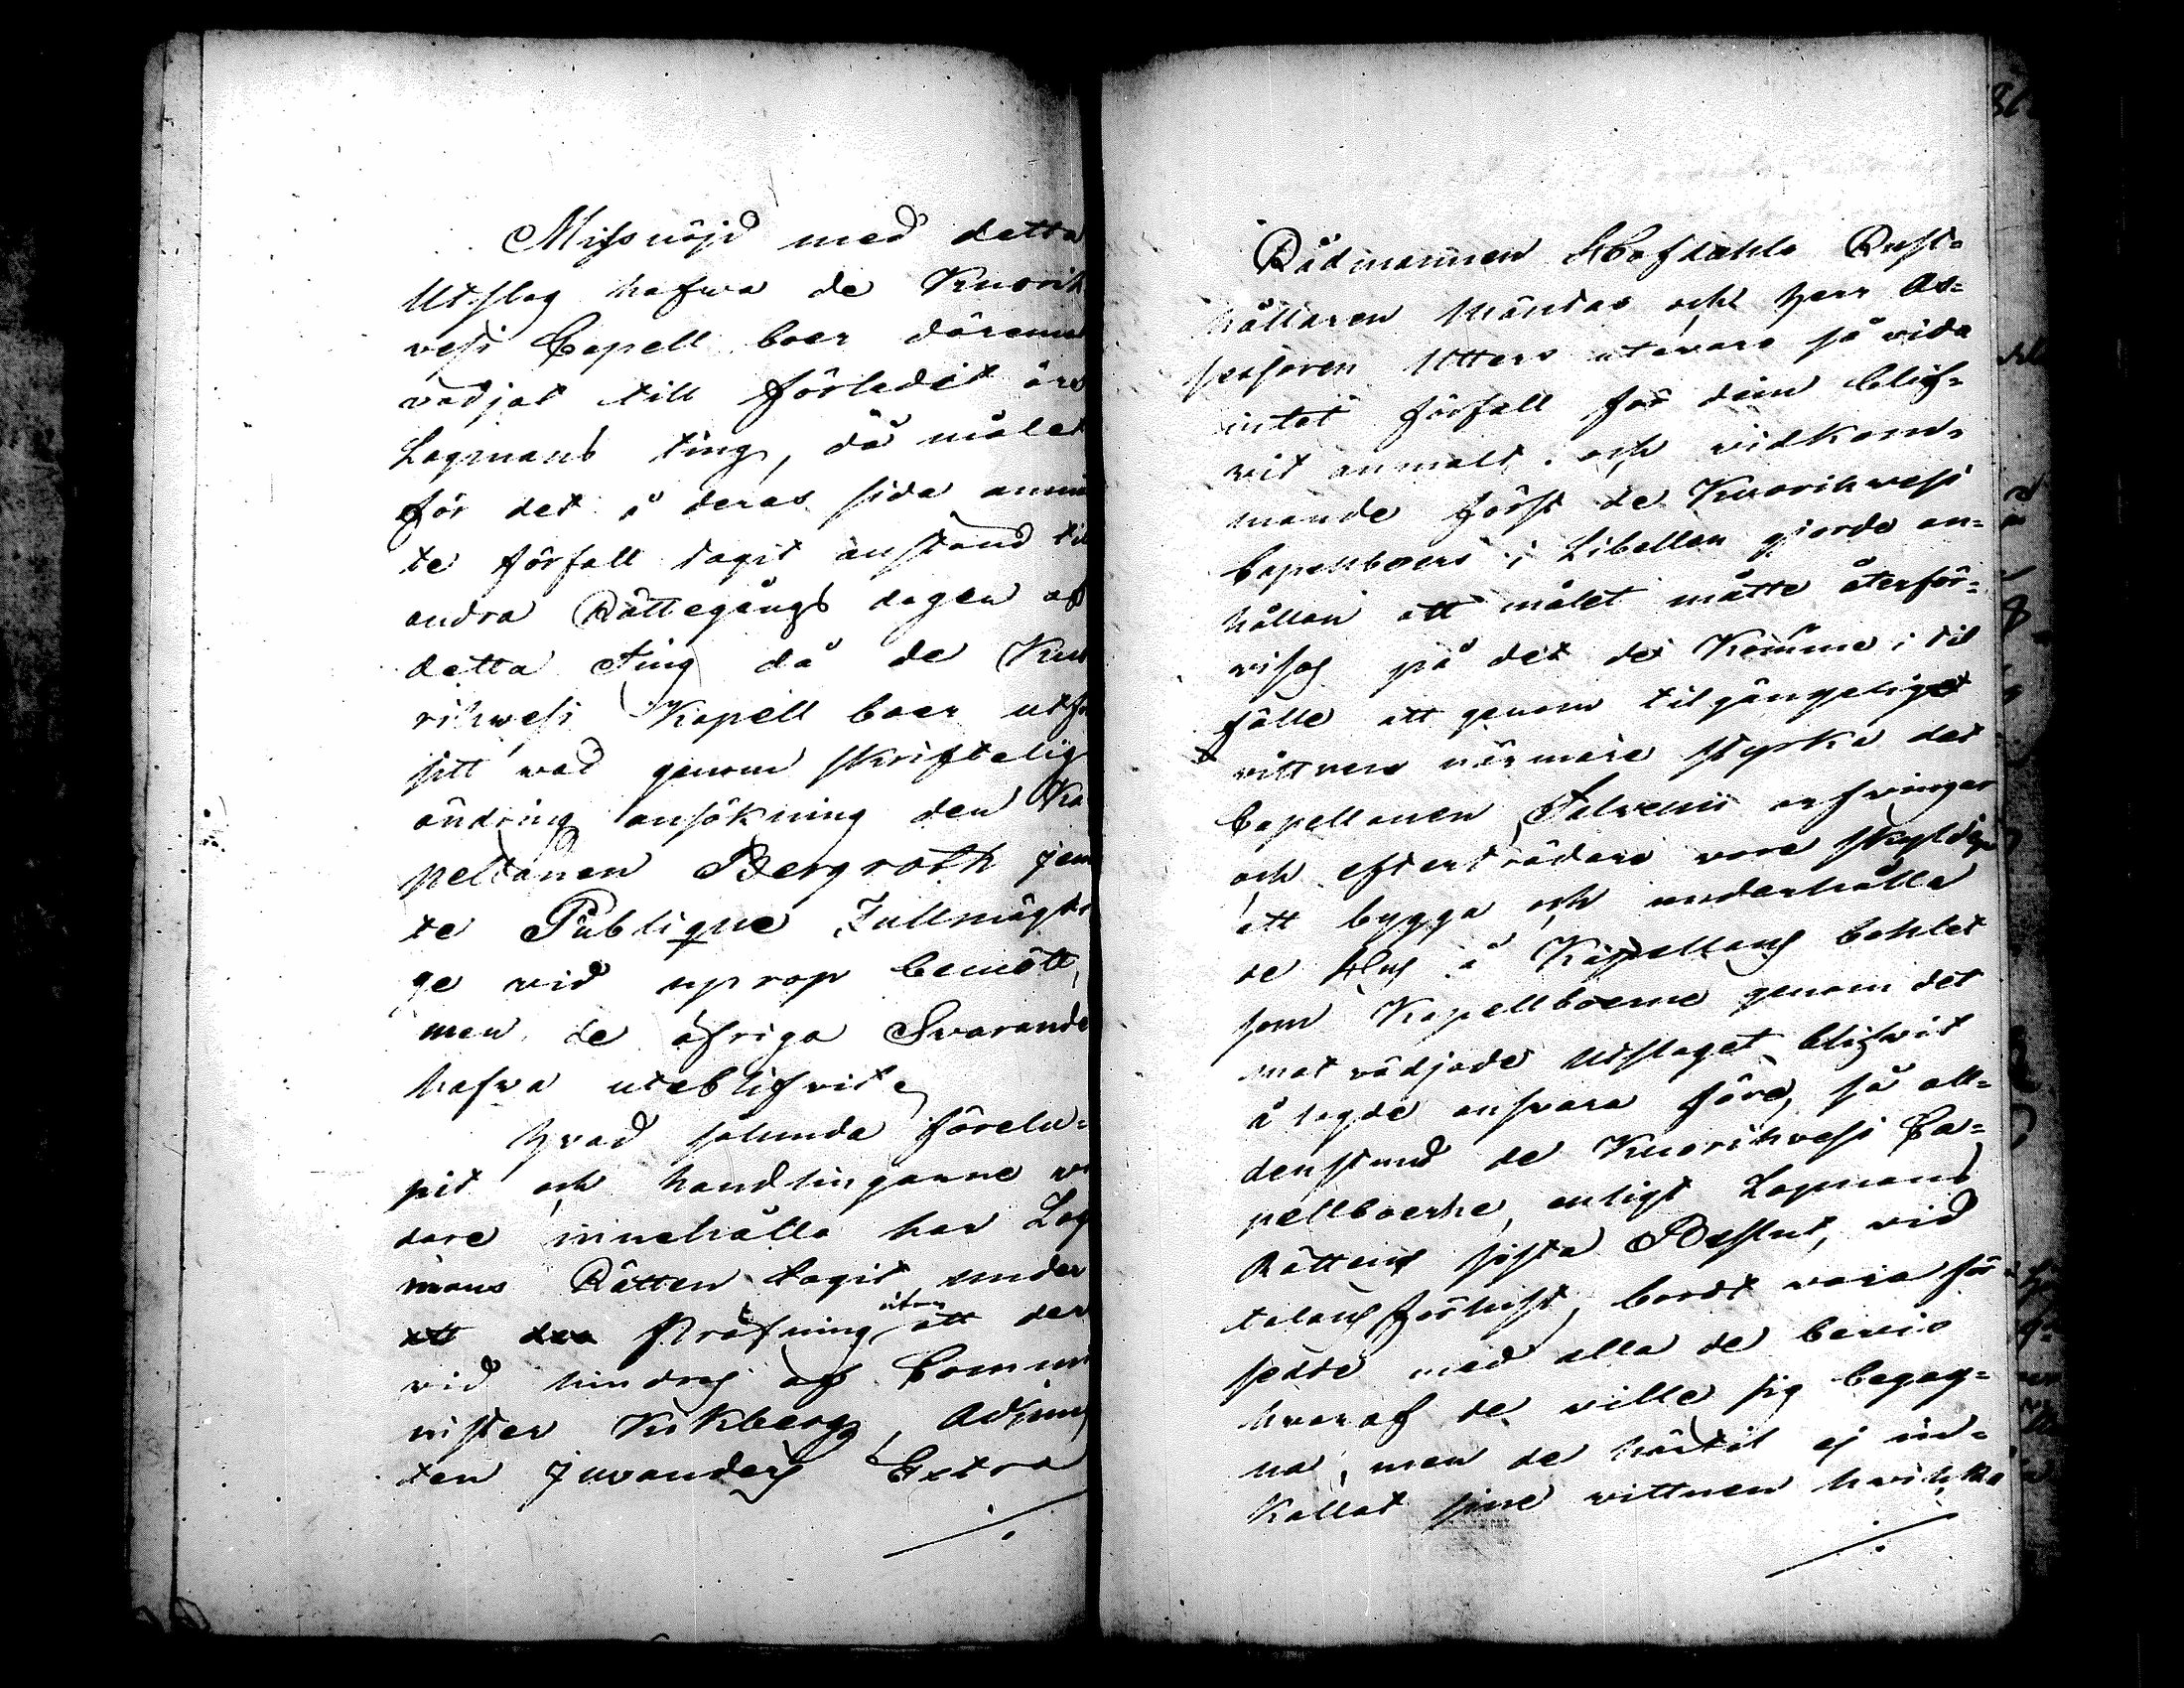 Missnöjd med detta
Utslag hafwa de Kuorih
vesi Capell boer därem
vädjat till förledit års
Lagmans ting, då målet
för det å deras sida anmä
te förfall tagit anstånd til
andra Rättegångs dagen af
detta Ting då de Kuo
rihwesi Kapell boer utfö
sitt wad genom skriftelig
ändring ansökning den Ka
pellanen Bergroth jem
te Publique Fullmägti
ge vid uprop bemött,
men de öfriga Svarande
hafva uteblifvit.
Hvad sålunda förelu=
pit och handlingarne vi
dare innehålla har Lag
mans Rätten tagit under
pröfning utan att der
vid hindras af Commi
nister Kukberg, Adjunc
ten Juvanders Extra
./.
Rådmannen Hofdahls Rust=
hållaren Mändas och Herr As=
sessoren Utters utevaro så vida
intet förfall för dem blif=
vit anmält. och vidkom=
mande först de Kuorihwesi
Capellboers i Libellen gjorde an=
hållan att målet måtte återför=
visas på det de Komme i til
fälle att genom tilgängeligt
vittnen närmare styrka det
Capellanen Salvenii arfwingar
och efterträdare vore skyldige
att bygga och underhålla
de Hus å Kapellans bohlet
som Kapellboerne genom det
mot vädjade Utslaget blifwit
å lagde ansvara före, så all=
denstund de Kuorihvesi Ca=
pellboerne, enligt Lagmans
Rättens sista Beslut, vid
talans förlust, bordt vara för=
sedde med alla de bevis
hvaraf de ville sig begag=
na, men de härtil ej in=
kallat sine vittnen hvilka
./.